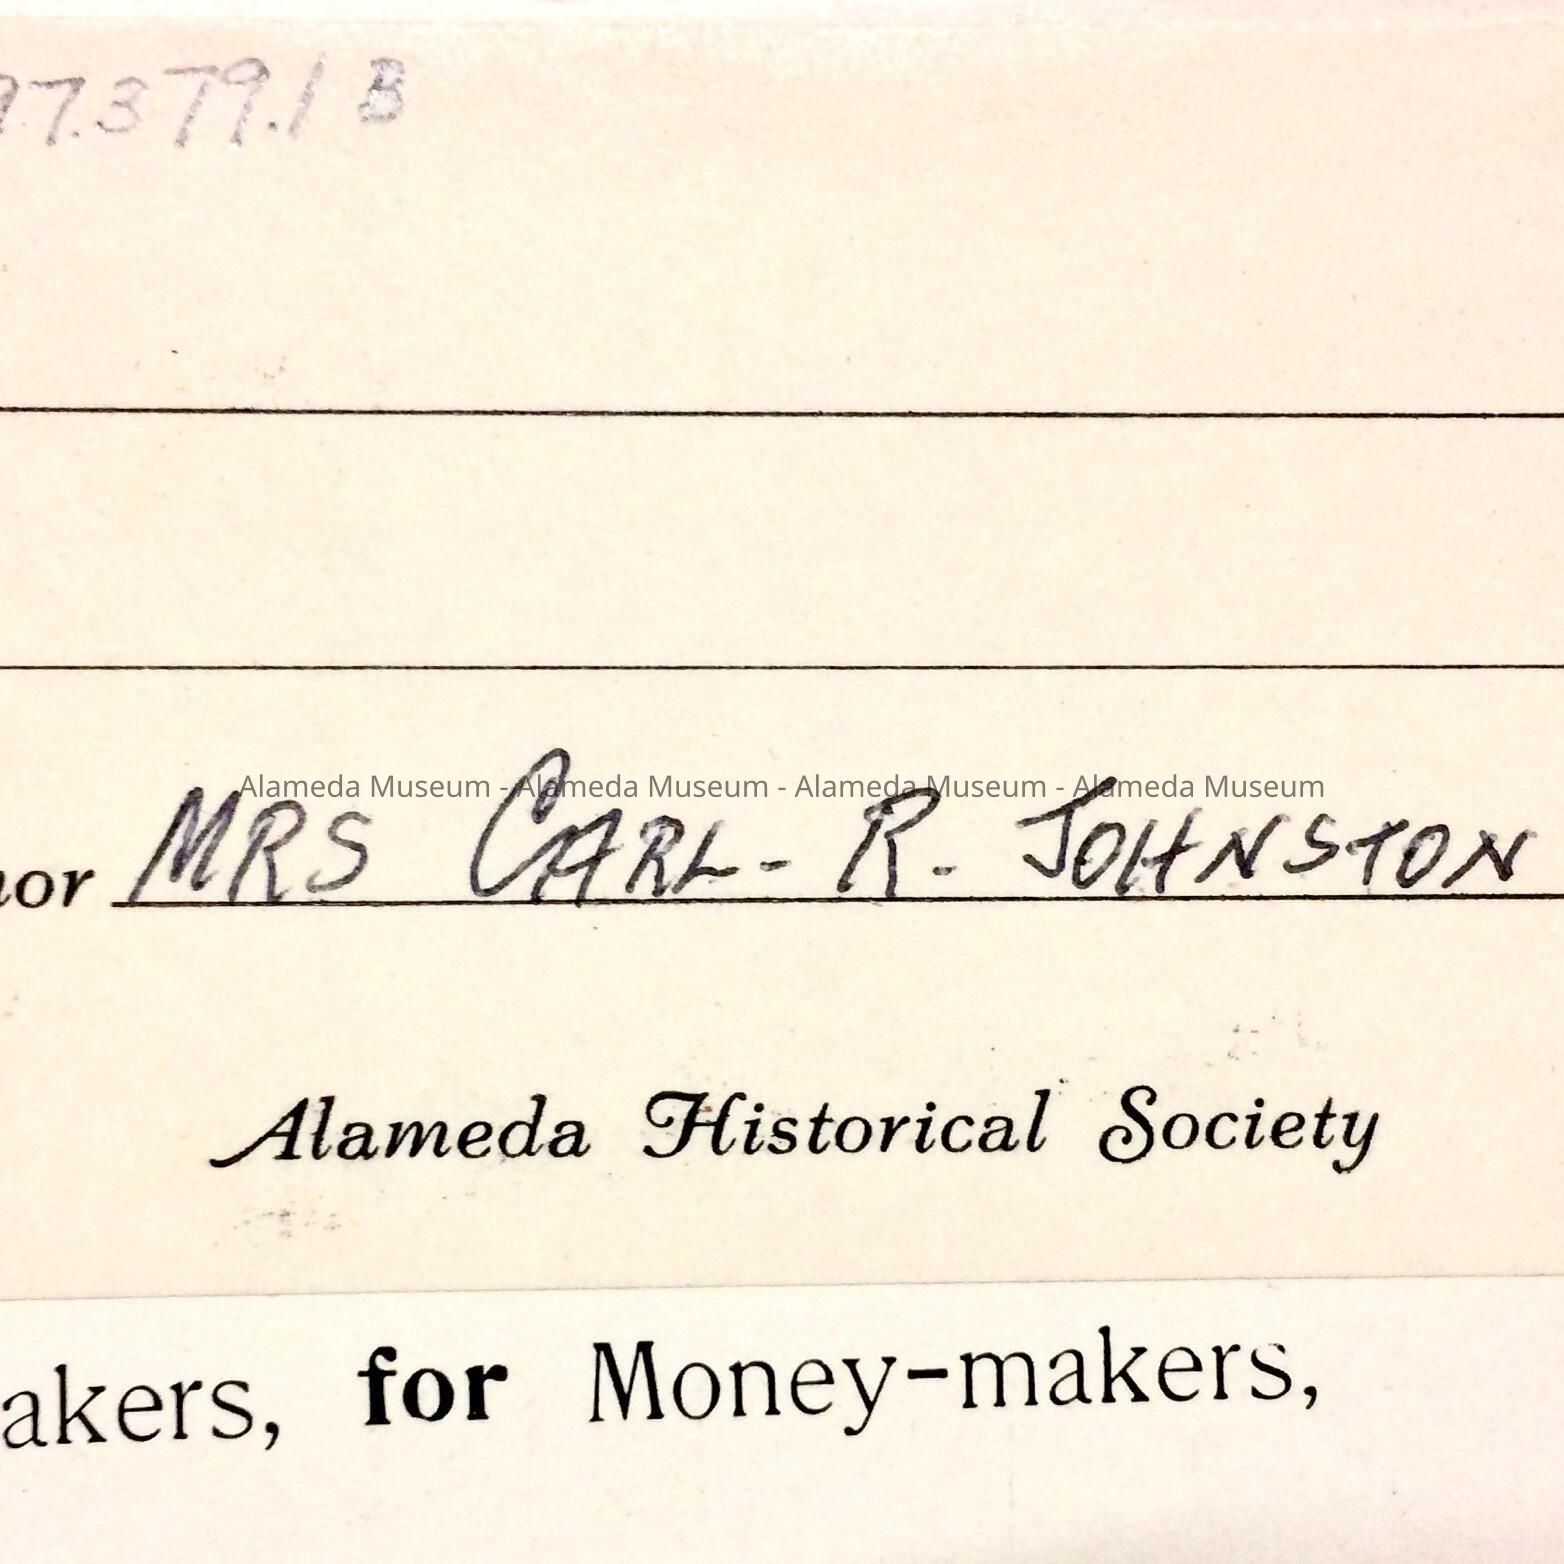 97.379.1 B
Alameda Museum - Alameda Museum - Alameda Museum - Alameda Museum
nor MRS CARL- R. JOHNSTON
Alameda Historical Society
akers, for Money-makers,